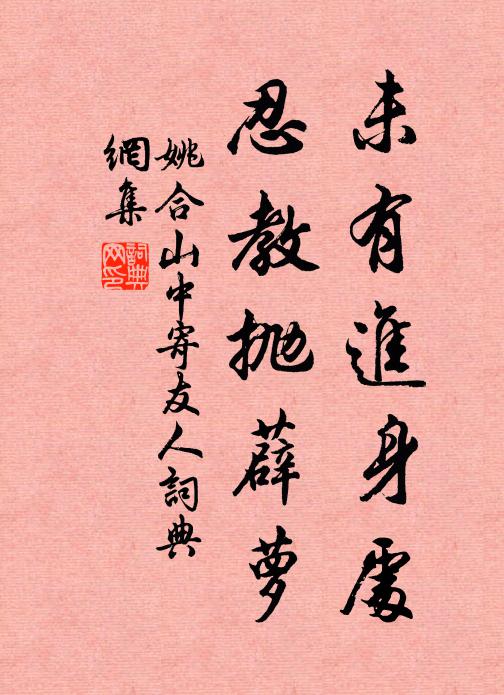 未有進身處
忍教拋薜蘿
姚合山中寄友人詞典
網集
詞典
网印